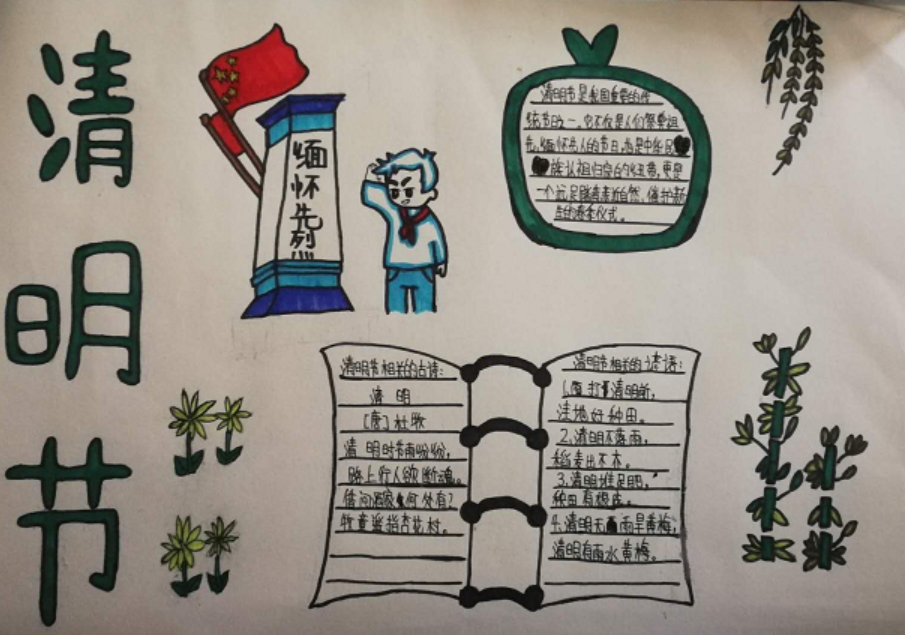 清明节
缅怀先烈!!!
清明节是我国重要的传
统节日之一。它不仅是人们祭奠祖
先、缅怀先人的节日,也是中华民
族认祖归宗的纽带,更是
一个远足踏青亲近自然、催护新
生的春季仪式。
清明节相关的古诗:
清 明
[唐] 杜牧
清 明时节雨纷纷,
路上行人欲断魂。
借问酒家何处有?
牧童遥指杏花村。
清明节相关的谚语:
1.雨打清明前,
洼地好种田。
2.清明不落雨,
稻麦出不
3.清明堆足肥,
秧田有
4.清明天雨旱黄梅,
清明有雨水黄梅。